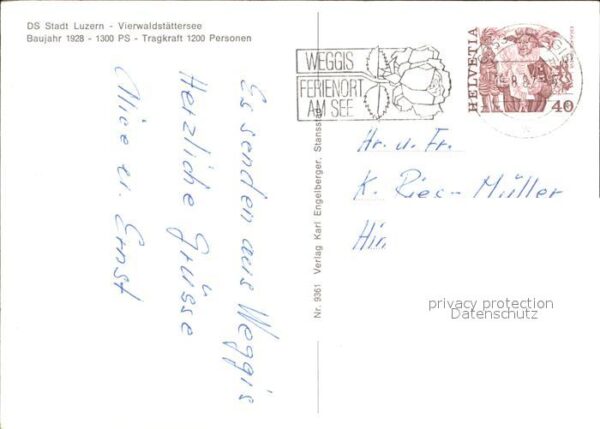 DS Stadt Luzern - Vierwaldstättersee
Baujahr 1928 - 1300 PS - Tragkraft 1200 Personen
Es senden aus Weggis
Herzliche Grüsse
Alice u. Ernst
Nr. 9361 Verlag Karl Engelberger, Stansstad
WEGGIS
FERIENORT
AM SEE
HELVETIA
40
Hr. u. Fr.
K. Riec-Müller
Hir.
privacy protection
Datenschutz